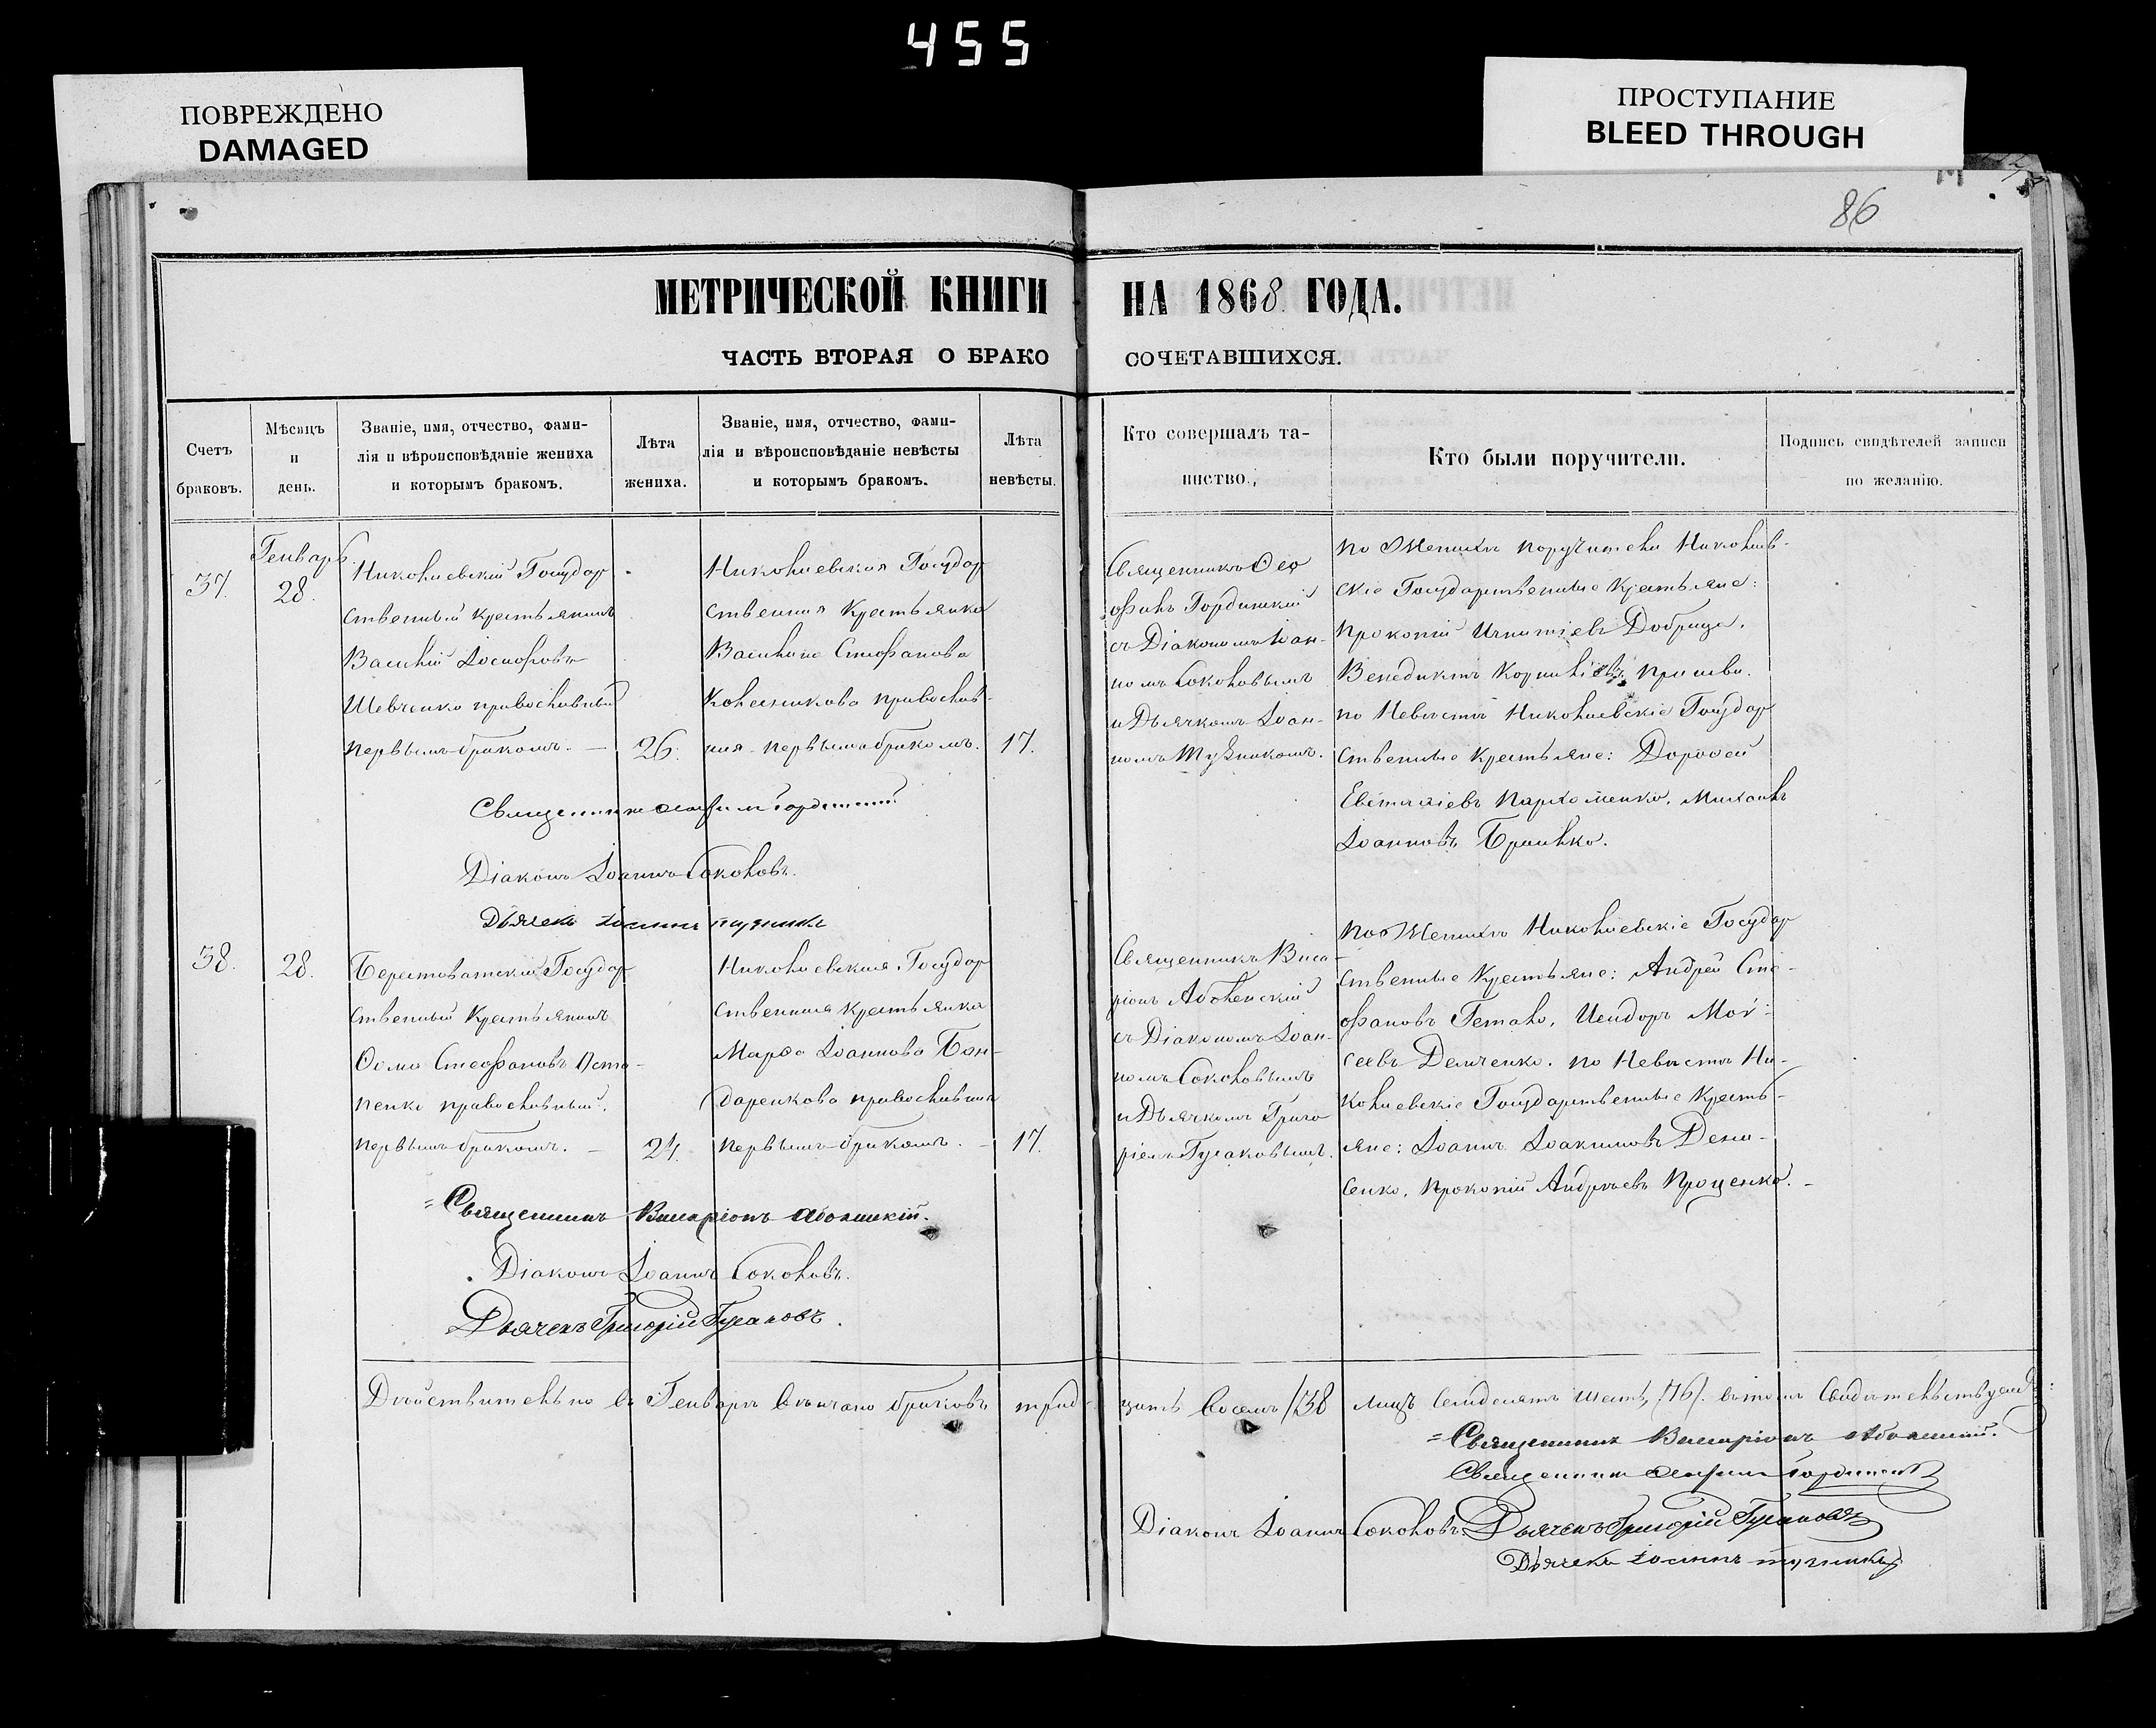 455
ПОВРЕЖДЕНО
DAMAGED
ПРОСТУПАНИЕ
BLEED THROUGH
86
МЕТРИЧЕСКОЙ КНИГИ НА 1868 ГОДА.
ЧАСТЬ ВТОРАЯ О БРАКОСОЧЕТАВШИХСЯ.
Счетъ
браковъ.
Мѣсяцъ
и
день.
Званіе, имя, отчество, фами-
лія и вѣроисповѣданіе жениха
и которымъ бракомъ.
Лѣта
жениха.
Званіе, имя, отчество, фами-
лія и вѣроисповѣданіе невѣсты
и которымъ бракомъ.
Лѣта
невѣсты.
Кто совершалъ та-
инство.
Кто были поручители.
Подпись свидѣтелей записи
по желанію.
37.
Генварь
28.
Николаевскій Государ
ственный крестьянинъ
Василій Іосифовъ
Шевченко православный
первымъ бракомъ. —
26.
Николаевская Государ
ственная крестьянка
Василиса Стефанова
Колесникова православ-
ная первымъ бракомъ.
17.
Священникъ Ѳео
филъ
съ Діакономъ Іоан-
номъ Соколовымъ
и Дьячкомъ Іоан-
номъ
По Женихѣ поручители Николаев-
скіе Государственные крестьяне:
Прокопій Игнатіевъ Добрица.
Венедиктъ Корниліевъ
по Невѣстѣ Николаевскіе Государ
ственные крестьяне: Дороѳей
Евстаѳіевъ Пархоменко. Михаилъ
Іоанновъ
Священникъ
Діаконъ Іоаннъ Соколовъ.
Дьячекъ Іоаннъ
38.
28.
Берестоватскій Государ
ственный крестьянинъ
Ѳома Стефановъ Оста-
пенко православный.
первымъ бракомъ. —
24.
Николаевская Государ
ственная крестьянка
Марѳа Іоаннова Бон-
даренкова православная
первымъ бракомъ. —
17.
Священникъ Висса-
ріонъ
съ Діакономъ Іоан-
номъ Соколовымъ
и Дьячкомъ Григо
ріемъ Гусаковымъ.
По Женихѣ Николаевскіе Государ
ственные крестьяне: Андрей Сте-
фановъ Гетало, Исидоръ Мої-
сеевъ Демченко. по Невѣстѣ Ни-
колаевскіе Государственные кресть-
яне: Іоаннъ Іоакимовъ Дени-
сенко, Прокопій Андреевъ Проценко. —
Священникъ Виссаріонъ
Діаконъ Іоаннъ Соколовъ.
Дьячекъ Григорій Гусаковъ.
Дѣйствительно въ Генварѣ вѣнчано браковъ трид-цать восемь /38 лицъ семьдесятъ шесть, /76/. въ томъ свидѣтельствуемъ:
Священникъ Виссаріонъ
Священникъ
Діаконъ Іоаннъ Соколовъ. Дьячекъ Григорій Гусаковъ
Дьячекъ Іоаннъ